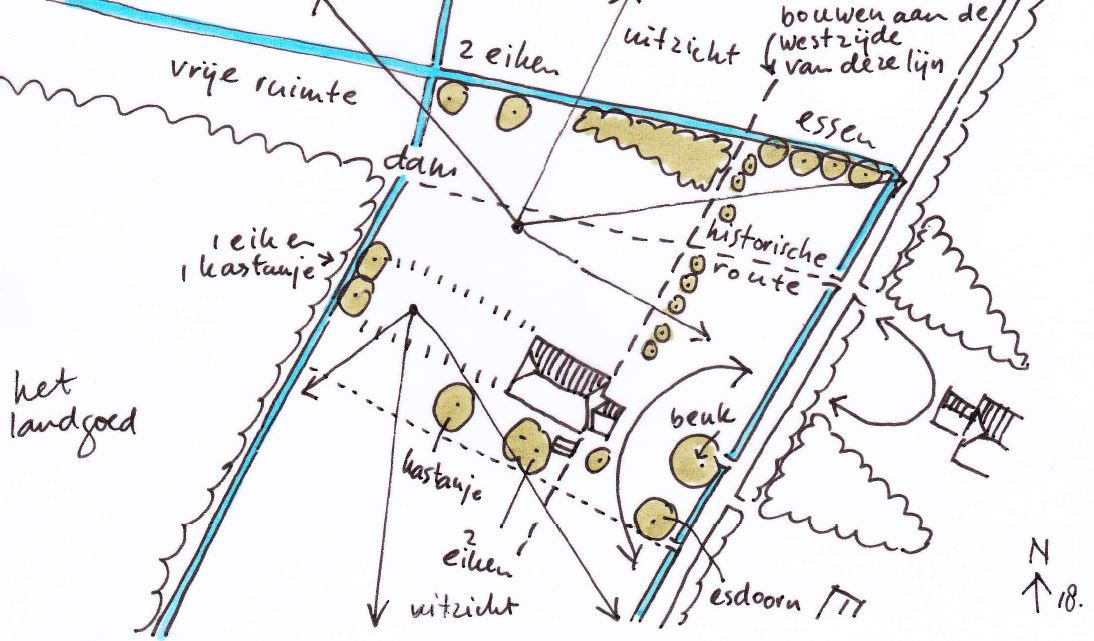 bouwen aan de
westzijde
van deze lijn
uitzicht
2 eiken
vrije ruimte
essen
dam
historische
route
1 eiken
1 kastanje
het
landgoed
beuk
kastanje
2
eiken
uitzicht
esdoorn
N
18.